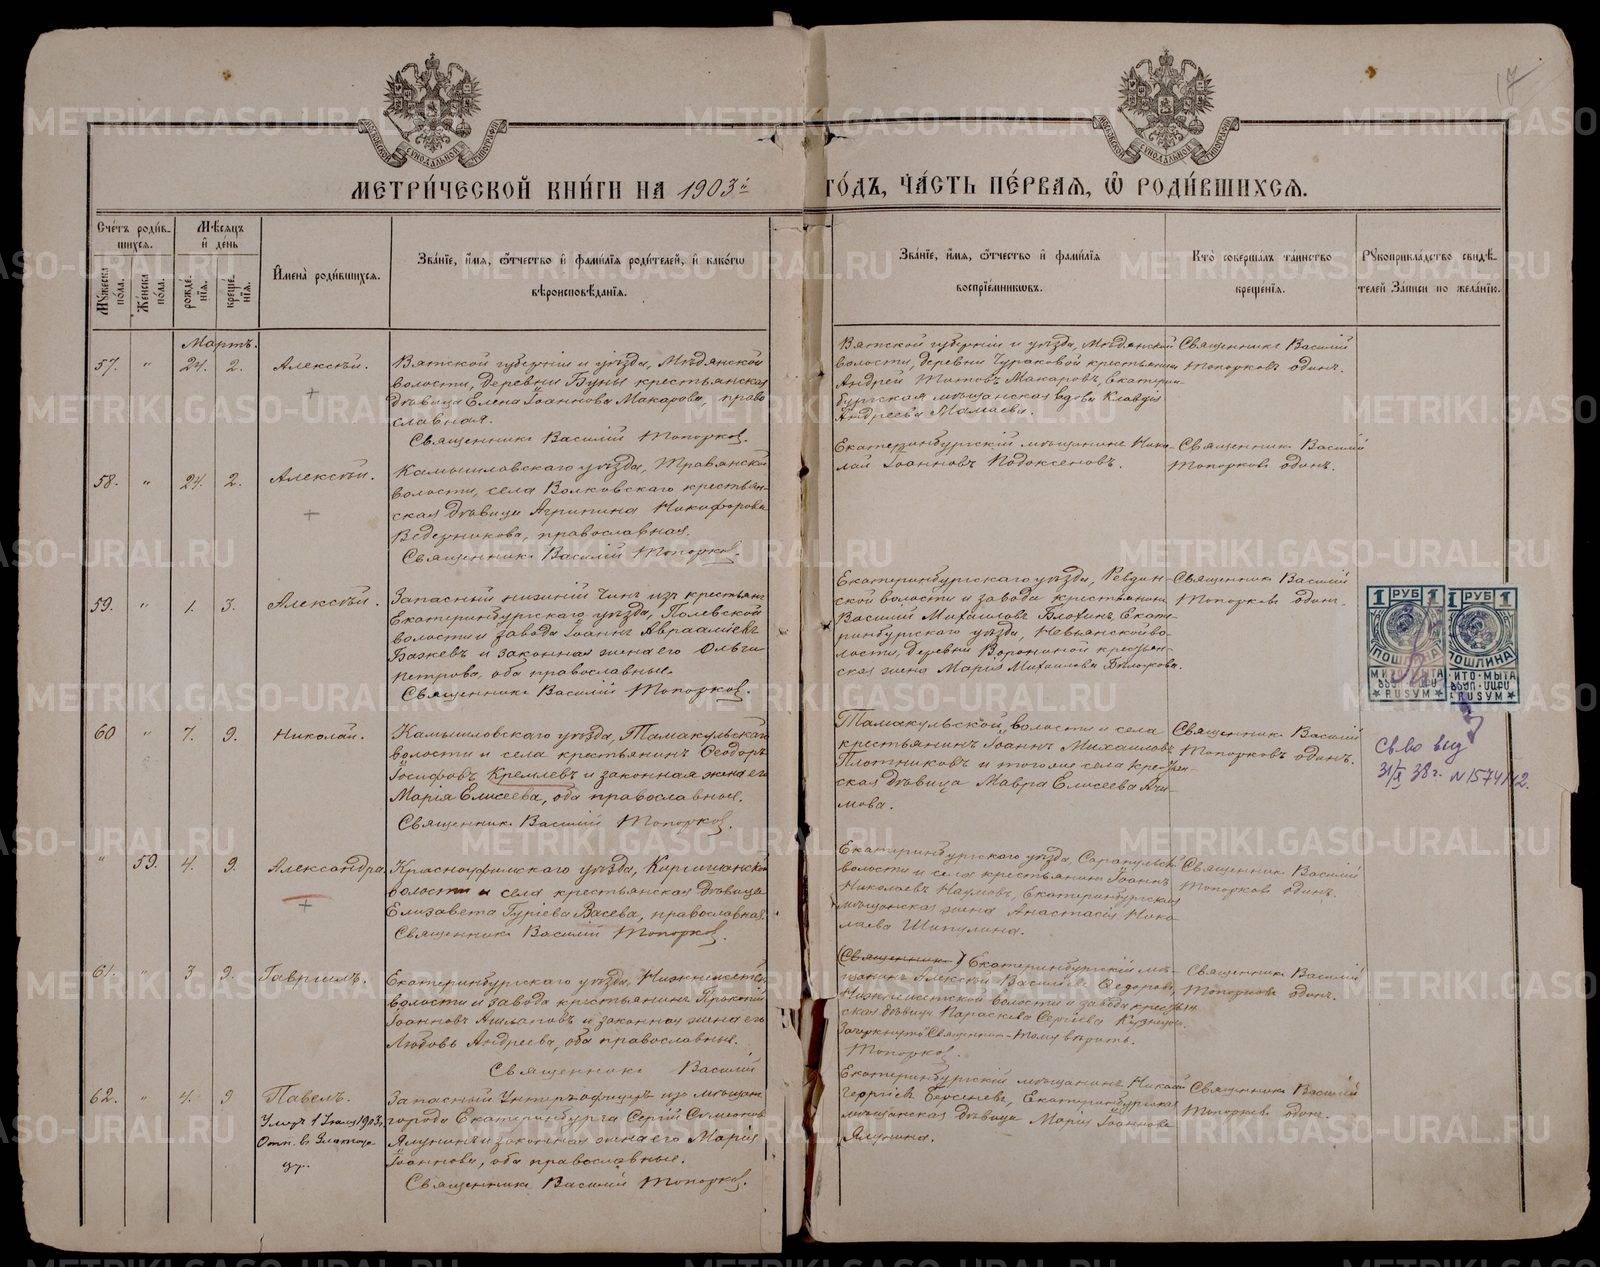 17
МОСКОВСКОЙ СѴНОДАЛЬНОЙ ТИПОГРАФІИ
МОСКОВСКОЙ СѴНОДАЛЬНОЙ ТИПОГРАФІИ
МЕТРИ́ЧЕСКОЙ КНИ́ГИ НА 1903й ГО́ДЪ, ЧА́СТЬ ПЕ́РВАЯ, Ѽ РОДИ́ВШИХСЯ.
Сче́тъ роди́в-
шихся.
Мѣсяцъ
и҆ де́нь
Му́жеска по́ла.
Же́нска по́ла.
рожде́-нїя.
креще́-нїя.
И҆мена̀ роди́вшихся.
Зва́нїе, и҆́мя, ѻ҆́тчество и҆ фами́лїя роди́телей, и҆ како́гѡ
вѣроисповѣ́данїя.
Зва́нїе, и҆́мя, ѻ҆́тчество и҆ фами́лїя
воспрїе́мникѡвъ.
Кто̀ соверша́лъ та́инство
креще́нїя.
Рꙋкоприкла́дство свидѣ́-
телей За́писи по жела́нїю.
Мартъ.
57. " 24. 2. Алексѣй.
Вятской губерніи и уѣзда, Мѣдянской
волости, деревни Буны крестьянская
дѣвица Елена Іоаннова Макарова, право
славная.
Священникъ Василій Топорковъ.
Вятской губерніи и уѣзда, Мѣдянской
волости, деревни Чураковой крестьянинъ
Андрей Титовъ Макаровъ, Екатерин-
бургская мѣщанская вдова Клавдія
Андреева Мамаева.
Священникъ Василій
Топорковъ одинъ.
58. " 24. 2. Алексѣй.
Камышловскаго уѣзда, Травянской
волости, села Волковскаго крестьян-
ская дѣвица Агрипина Никифорова
Ведерникова, православная.
Священникъ Василій Топорковъ.
Екатеринбургскій мѣщанинъ Нико-
лай Іоанновъ Подоксеновъ.
Священникъ Василій
Топорковъ одинъ.
59. " 1. 3. Алексѣй.
Запасный нижній чинъ изъ крестьянъ
Екатеринбургскаго уѣзда, Полевской
волости и завода Іоаннъ Авраамієвъ
Бажевъ и законная жена его Ольга
Петрова, оба православные.
Священникъ Василій Топорковъ.
Екатеринбургскаго уѣзда, Ревдин-
ской волости и завода крестьянинъ
Василій Михаиловъ Блохинъ, Екате-
ринбургскаго уѣзда, Невьянской во-
лости, деревни Ворониной крестьян-
ская жена Марія Михаилова
Священникъ Василій
Топорковъ одинъ.
1 РУБ 1
ПОШЛИНА
RUSUM
1 РУБ 1
ПОШЛИНА
ИТО·МЫТА
RUSUM
Св-во выд
31/X 38 г. N 1574/42.
60 " 7. 9. Николай.
Камышловскаго уѣзда, Тамакульской
волости и села крестьянинъ Ѳеодоръ
Іосифовъ Кремлевъ и законная жена его
Марія Елисеева, оба православные.
Священникъ Василій Топорковъ.
Тамакульской волости и села
крестьянинъ Іоаннъ Михаиловъ
Плотниковъ и того же села крестьян-
ская дѣвица Мавра Елисеева Аки-
мова.
Священникъ Василій
Топорковъ одинъ.
" 59. 4. 9. Александра
Красноуфимскаго уѣзда, Киргишанской
волости и села крестьянская дѣвица
Елизавета Гуріева Васева, православная.
Священникъ Василій Топорковъ.
Екатеринбургскаго уѣзда, Сарапульск.
волости и села крестьянинъ Іоаннъ
Николаевъ Наумовъ, Екатеринбургская
мѣщанская жена Анастасія Нико-
лаева Шипулина.
Священникъ Василій
Топорковъ одинъ.
61. " 3 9. Гавріилъ.
Екатеринбургскаго уѣзда, Нижнеисетск.
волости и завода крестьянинъ Прокопій
Іоанновъ и законная жена его
Любовь Андреева, оба православные.
Священникъ Василій
(Священникъ) Екатеринбургскій мѣ-
щанинъ Алексѣй Василіевъ Ѳедоровъ,
Нижнеисетской волости и завода крестьян-
ская дѣвица Параскева Сергіева Кузнецова.
Зачеркнуто "Священник" тому вѣрить.
Топорковъ.
Священникъ Василій
Топорковъ одинъ.
62. " 4. 9 Павелъ.
Умеръ 1 Іюля 1903,
Отп. в Златоуст.
Запасный Унтеръ-офицеръ изъ мѣщанъ
города Екатеринбурга Сергій Симеоновъ
Ялунинъ и законная жена его Марія
Іоаннова, оба православные.
Священникъ Василій Топорковъ.
Екатеринбургскій мѣщанинъ Николай
Георгіевъ Берсеневъ, Екатеринбургская
мѣщанская дѣвица Марія Іоаннова
Ялунина.
Священникъ Василій
Топорковъ одинъ.
METRIKI.GASO-URAL.RU